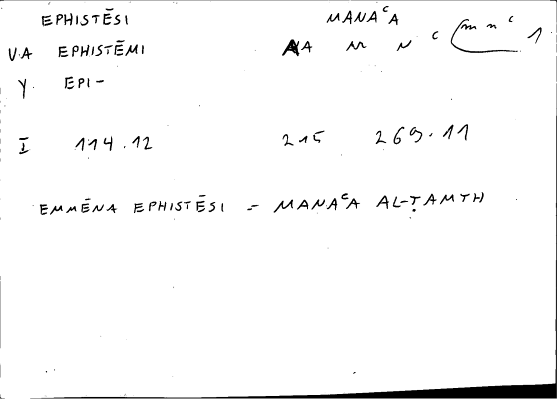 EPHISTĒSI MANAᶜA
V.A EPHISTĒMI AA M N ᶜ (m n ᶜ 1
Y EPI-
I 114.12 215 269.11
EMMĒNA EPHISTĒSI = MANAᶜA AL-ṬAMTH